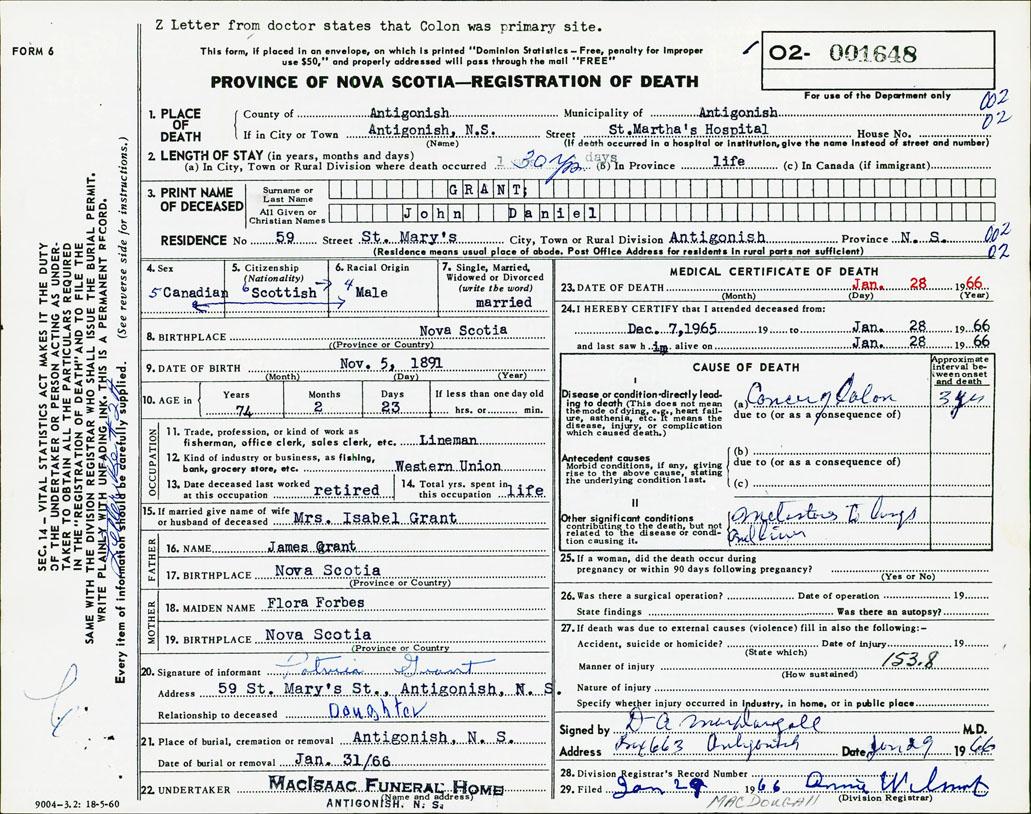 Z Letter from doctor states that Colon was primary site.
FORM 6
This form, if placed in an envelope, on which is printed "Dominion Statistics – Free, penalty for improper
use $50," and properly addressed will pass through the mail "FREE"
O2- 001648
PROVINCE OF NOVA SCOTIA—REGISTRATION OF DEATH
For use of the Department only
002
02
SEC. 14 – VITAL STATISTICS ACT MAKES IT THE DUTY
OF THE UNDERTAKER OR PERSON ACTING AS UNDER-
TAKER TO OBTAIN ALL THE PARTICULARS REQUIRED
IN THE "REGISTRATION OF DEATH" AND TO FILE THE
SAME WITH THE DIVISION REGISTRAR WHO SHALL ISSUE THE BURIAL PERMIT.
WRITE PLAINLY WITH UNFADING INK. THIS IS A PERMANENT RECORD.
Every item of information should be carefully supplied. (See reverse side for instructions.)
1. PLACE OF DEATH
County of Antigonish Municipality of Antigonish
If in City or Town Antigonish, N.S. Street St.Martha's Hospital House No.
(Name) (If death occurred in a hospital or institution, give the name instead of street and number)
2. LENGTH OF STAY (in years, months and days)
(a) In City, Town or Rural Division where death occurred 30 yrs days (b) In Province life (c) In Canada (if immigrant)
3. PRINT NAME OF DECEASED
Surname or Last Name GRANT;
All Given or Christian Names John Daniel
RESIDENCE No 59 Street St. Mary's City, Town or Rural Division Antigonish Province N. S. 002
(Residence means usual place of abode. Post Office Address for residents in rural parts not sufficient) 02
4. Sex 5 Canadian
5. Citizenship (Nationality) 6 Scottish
6. Racial Origin 4 Male
7. Single, Married, Widowed or Divorced (write the word) married
8. BIRTHPLACE Nova Scotia
(Province or Country)
9. DATE OF BIRTH Nov. 5, 1891
(Month) (Day) (Year)
10. AGE in Years 74 Months 2 Days 23 If less than one day old hrs. or min.
OCCUPATION
11. Trade, profession, or kind of work as
fisherman, office clerk, sales clerk, etc. Lineman
12. Kind of industry or business, as fishing,
bank, grocery store, etc. Western Union
13. Date deceased last worked
at this occupation retired
14. Total yrs. spent in
this occupation life
15. If married give name of wife
or husband of deceased Mrs. Isabel Grant
FATHER
16. NAME James Grant
17. BIRTHPLACE Nova Scotia
(Province or Country)
MOTHER
18. MAIDEN NAME Flora Forbes
19. BIRTHPLACE Nova Scotia
(Province or Country)
20. Signature of informant Patricia Grant
Address 59 St. Mary's St., Antigonish, N. S.
Relationship to deceased Daughter
21. Place of burial, cremation or removal Antigonish, N. S.
Date of burial or removal Jan. 31/66
22. UNDERTAKER MacIsaac Funeral Home
(Name and address)
ANTIGONISH. N. S.
9004-3.2: 18-5-60
MEDICAL CERTIFICATE OF DEATH
23. DATE OF DEATH Jan. 28 1966
(Month) (Day) (Year)
24. I HEREBY CERTIFY that I attended deceased from:
Dec. 7,1965 19 to Jan. 28 1966
and last saw h im alive on Jan. 28 1966
CAUSE OF DEATH
Approximate interval between onset and death
I
Disease or condition directly lead-
ing to death (This does not mean
the mode of dying, e.g., heart fail-
ure, asthenia, etc. It means the
disease, injury, or complication
which caused death.)
(a) Cancer of Colon 3 yrs
due to (or as a consequence of)
Antecedent causes
Morbid conditions, if any, giving
rise to the above cause, stating
the underlying condition last.
(b)
due to (or as a consequence of)
(c)
II
Other significant conditions
contributing to the death, but not
related to the disease or condi-
tion causing it.
metastases to lungs
and liver
25. If a woman, did the death occur during
pregnancy or within 90 days following pregnancy?
(Yes or No)
26. Was there a surgical operation? Date of operation 19
State findings Was there an autopsy?
27. If death was due to external causes (violence) fill in also the following:–
Accident, suicide or homicide? Date of injury 19
(State which)
Manner of injury 153.8
(How sustained)
Nature of injury
Specify whether injury occurred in industry, in home, or in public place
Signed by D-A MacDougall M.D.
Address Box 663 Antigonish Date Jan 29 1966
28. Division Registrar's Record Number
29. Filed Jan 29 1966 Annie Wilmot
(Division Registrar)
MACDOUGALL